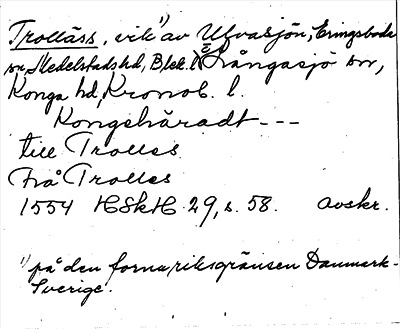 Trolläss, vik ¹⁾ av Ulvasjön, Eringsboda
sn, Medelstads hd, Blek. l. o Långasjö sn,
Konga hd, Kronob. l.
Kongshäradt - - -
till Trolles
Frå Trolles
1554 HSkH 29, s. 58. avskr.
¹⁾ på den forna riksgränsen Danmark-
Sverige.